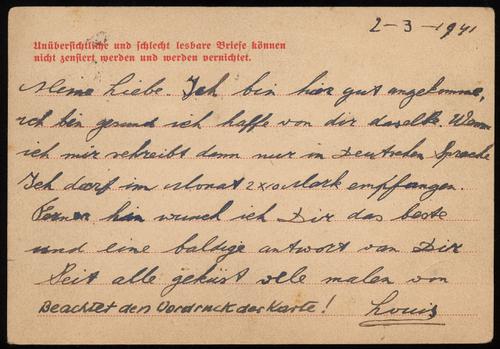 2-3-1941
Unübersichtliche und schlecht lesbare Briefe können
nicht zensiert werden und werden vernichtet.
Meine Liebe. Ich bin hier gut angekomme,
ich bin gesund ich hoffe von dir daselbe. Wenn
ich mir schreibt dann nur in Deutschen Sprache
Ich darf im Monat 2x10 Mark empfangen.
Ferner hin wunch ich Dir das beste
und eine baldige antwort van Dir
Seit alle geküst vele malen von
Beachtet den Vordruck der Karte! Louis